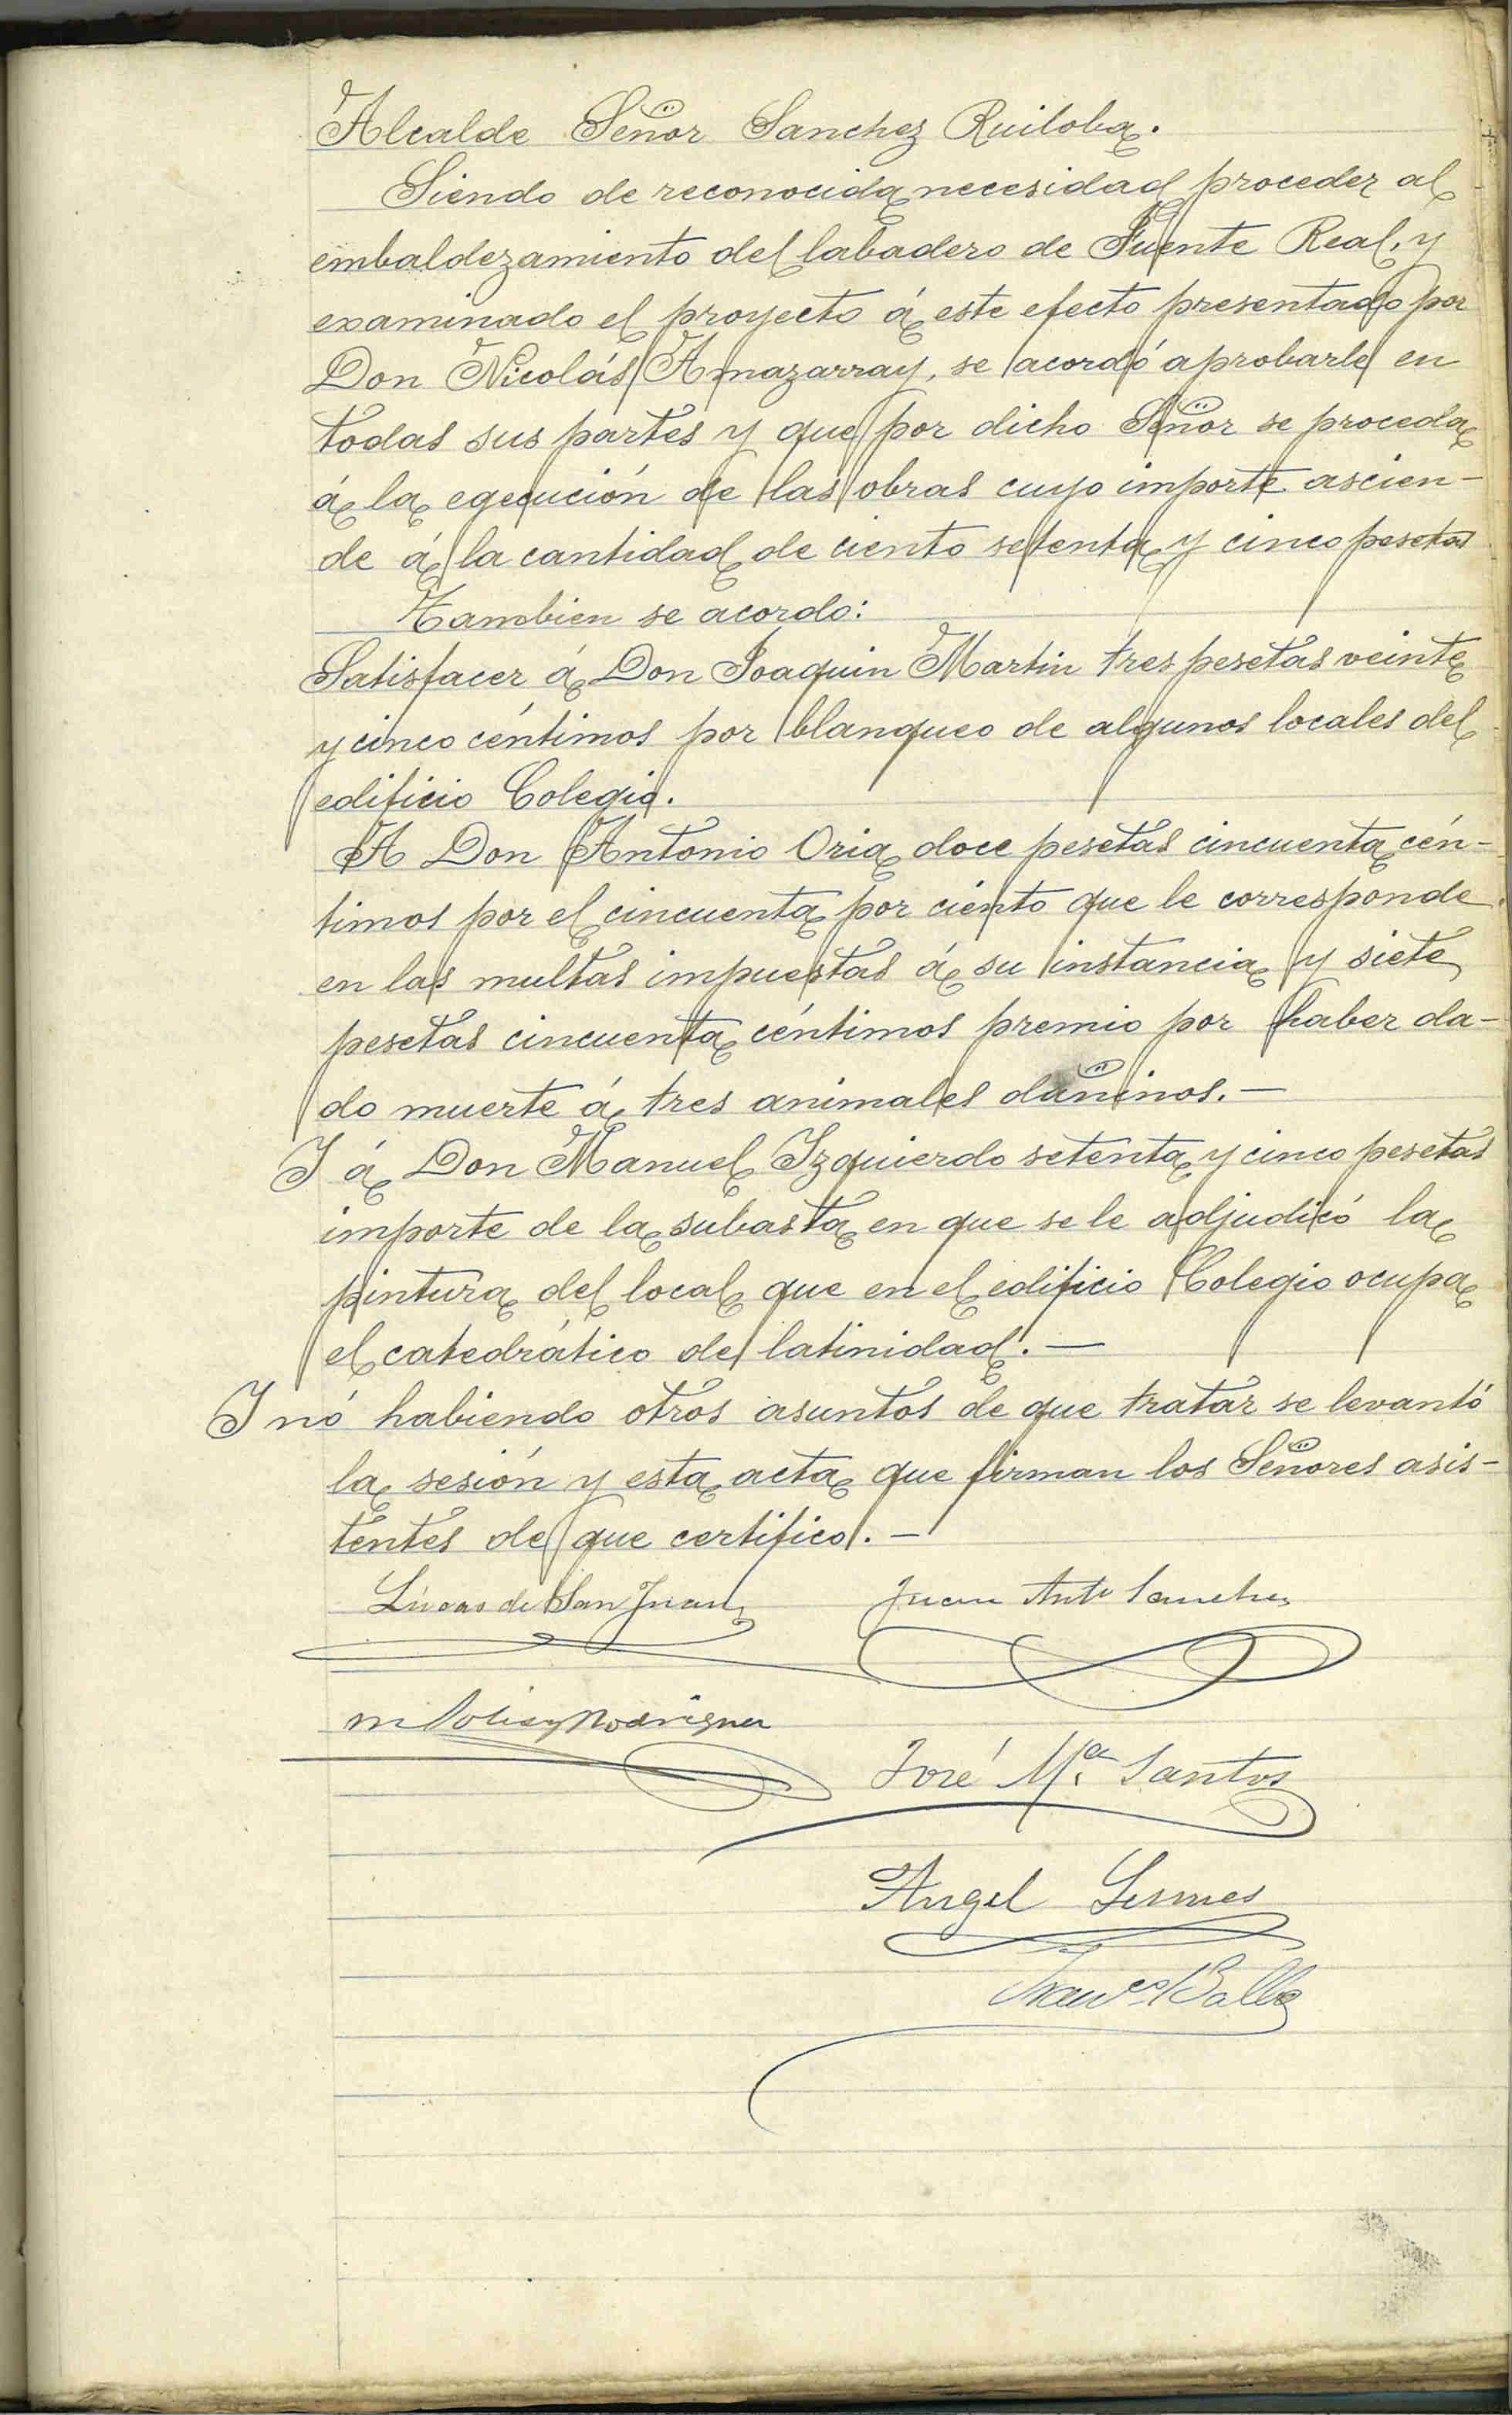 Alcalde Señor Sanchez Ruiloba.
Siendo de reconocida necesidad proceder al
embaldezamiento del labadero de Fuente Real, y
examinado el proyecto á este efecto presentado por
Don Nicolás Amazarray, se acordó aprobarle en
todas sus partes y que por dicho Señor se proceda
á la egecución de las obras cuyo importe ascien-
de á la cantidad de ciento setenta y cinco pesetas
Tambien se acordo:
Satisfacer á Don Joaquin Martin tres pesetas veinte
y cinco céntimos por blanqueo de algunos locales del
edificio Colegio.
A Don Antonio Oria doce pesetas cincuenta cén-
timos por el cincuenta por ciento que le corresponde
en las multas impuestas á su instancia y siete
pesetas cincuenta céntimos premio por haber da-
do muerte á tres animales dañinos.—
Y á Don Manuel Izquierdo setenta y cinco pesetas
importe de la subasta en que se le adjudicó la
pintura del local que en el edificio Colegio ocupa
el catedrático de latinidad.—
Y nó habiendo otros asuntos de que tratar se levantó
la sesión y esta acta que firman los Señores asis-
tentes de que certifico.—
Lúcas de San Juan
Juan Antº Sanchez
M Solis y Rodriguez
José Mª Santos
Angel Lesmes
Franco Balbo